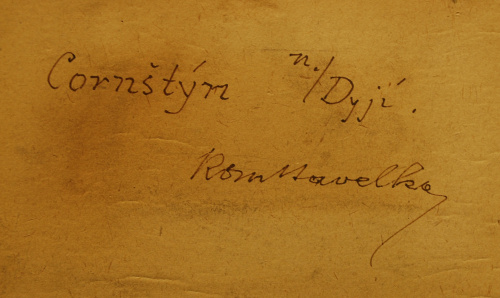 Cornštýn n./Dyjí.
Rom Havelka